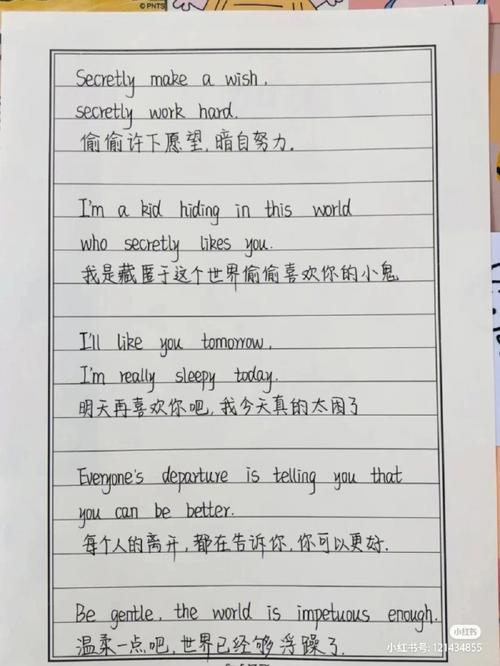 © PNTS
Secretly make a wish,
secretly work hard.
偷偷许下愿望,暗自努力.
I'm a kid hiding in this world
who secretly likes you.
我是藏匿于这个世界偷偷喜欢你的小鬼
I'll like you tomorrow,
I'm really sleepy today.
明天再喜欢你吧,我今天真的太困了
Everyone's departure is telling you that
you can be better.
每个人的离开,都在告诉你,你可以更好.
Be gentle, the world is impetuous enough.
温柔一点吧,世界已经够浮躁了.
小红书
小红书号: 121434855